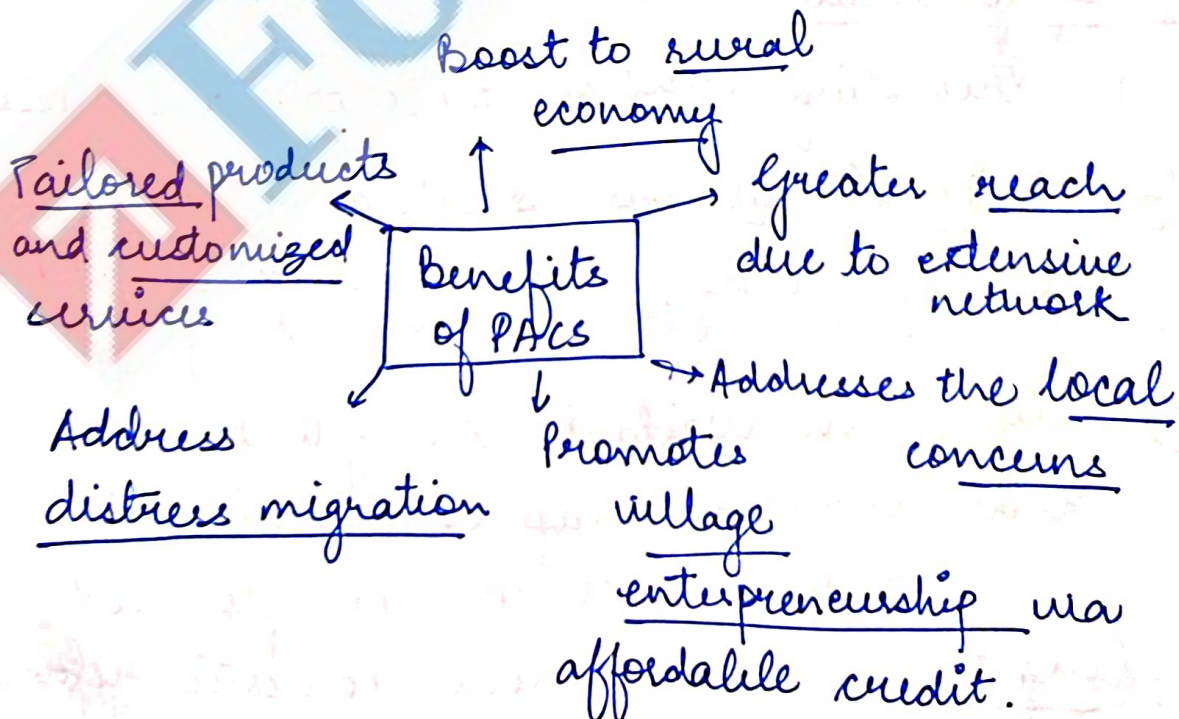 Boost to rural
economy
Tailored products
and customized
services
Greater reach
due to extensive
network
Benefits
of PACS
Addresses the local
concerns
Address
distress migration
Promotes
village
enterpreneurship via
affordable credit.